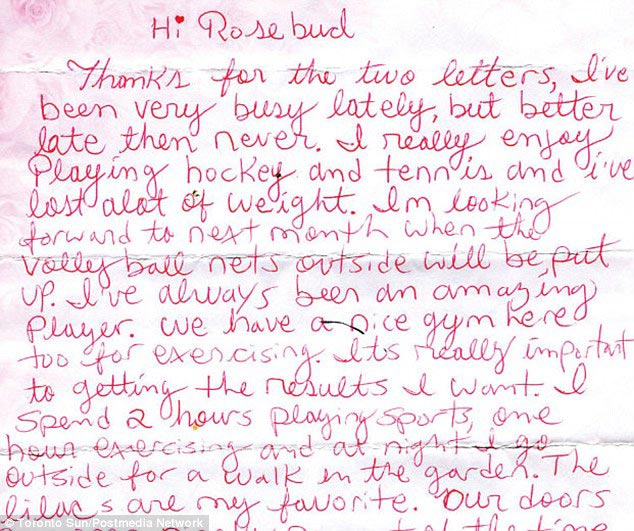 Hi Rosebud
Thanks for the two letters, I've
been very busy lately, but better
late then never. I really enjoy
Playing hockey and tennis and i've
lost alot of weight. Im looking
forward to next month when the
volley ball nets outside will be put
up. I've always been an amazing
player. We have a nice gym here
too for exercising. Its really important
to getting the results I want. I
spend 2 hours playing sports, one
hour exercising and at night I go
outside for a walk in the garden. The
lilacs are my favorite. Our doors
© Toronto Sun/Postmedia Network